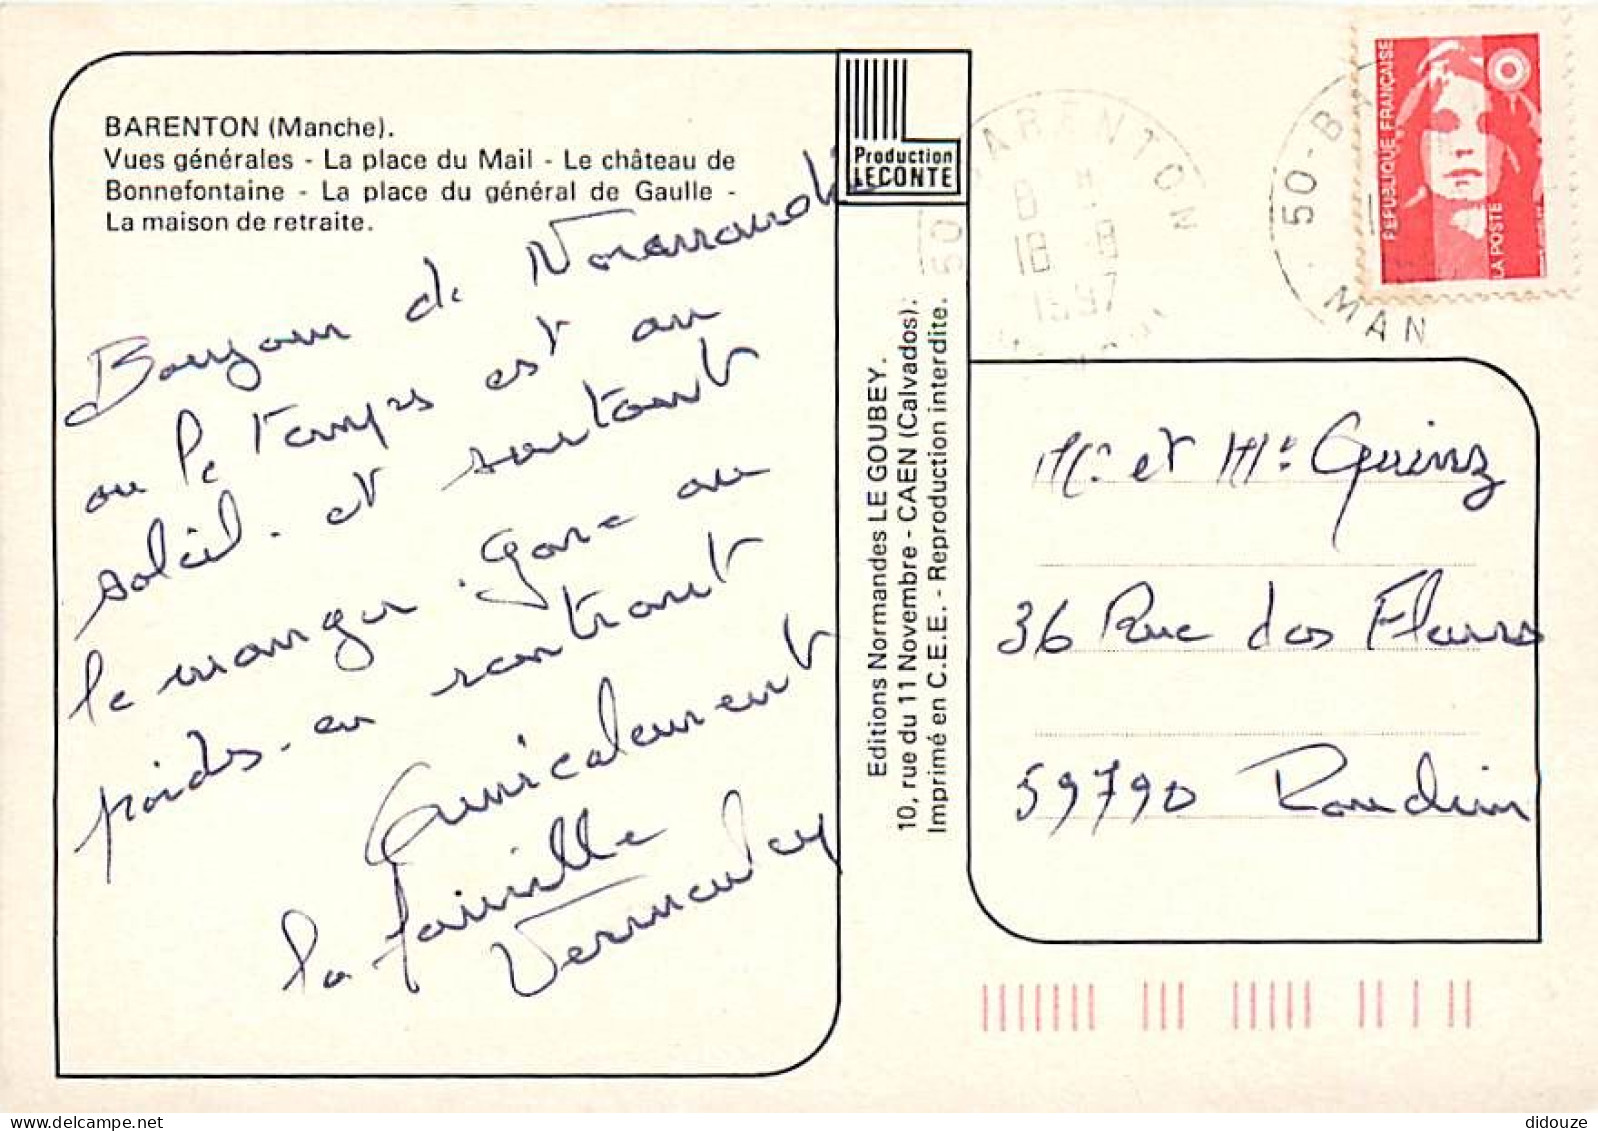 BARENTON (Manche).
Vues générales - La place du Mail - Le château de
Bonnefontaine - La place du général de Gaulle -
La maison de retraite.
Bonjour de Normandie
ou le temps est au
soleil. et surtout
le manger. Gare au
poids. en rentrant
Amicalement
la famille
Vermeulen
Production
LECONTE
Editions Normandes LE GOUBEY.
10, rue du 11 Novembre - CAEN (Calvados).
Imprimé en C.E.E. - Reproduction interdite.
50 BARENTON
18 -8
1997
50-B
MAN
REPUBLIQUE FRANÇAISE
LA POSTE
Mr et Me Guinz
36 Rue des Fleurs
59790 Ronchin
didouze